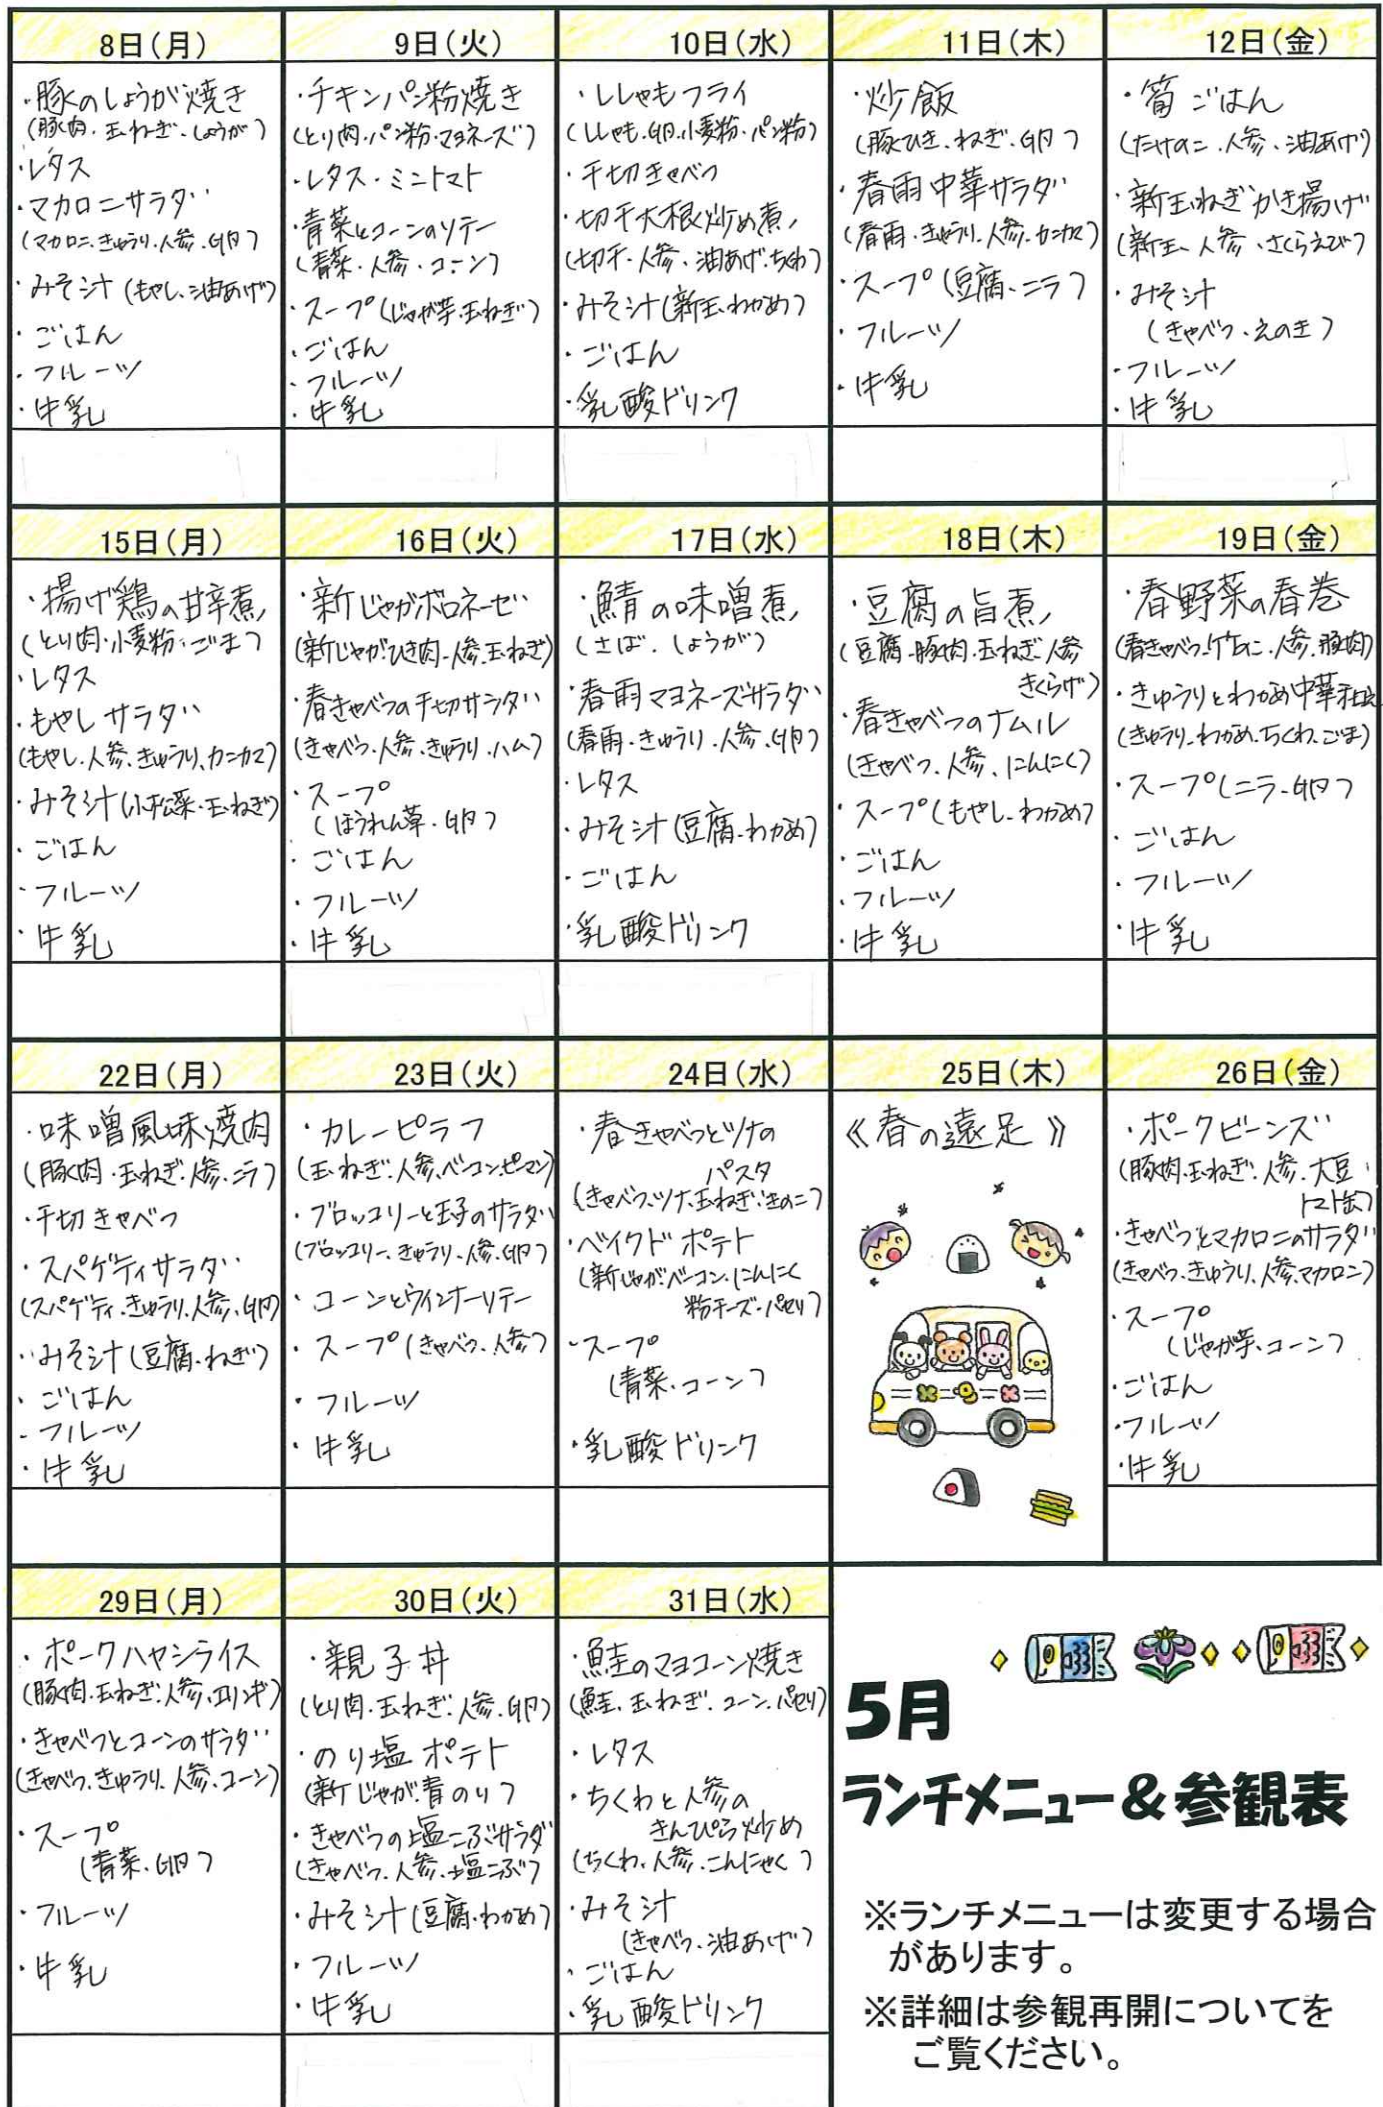 8日(月)
・豚のしょうが焼き
(豚肉・玉ねぎ・しょうが)
・レタス
・マカロニサラダ
(マカロニ・きゅうり・人参・卵)
・みそ汁(もやし・油あげ)
・ごはん
・フルーツ
・牛乳
9日(火)
・チキンパン粉焼き
(とり肉・パン粉・マヨネーズ)
・レタス・ミニトマト
・青菜とコーンのソテー
(青菜・人参・コーン)
・スープ(じゃが芋・玉ねぎ)
・ごはん
・フルーツ
・牛乳
10日(水)
・ししゃもフライ
(ししゃも・卵・小麦粉・パン粉)
・千切きゃべつ
・切干大根炒め煮
(切干・人参・油あげ・ちくわ)
・みそ汁(新玉・わかめ)
・ごはん
・乳酸ドリンク
11日(木)
・炒飯
(豚ひき・ねぎ・卵)
・春雨中華サラダ
(春雨・きゅうり・人参・カニカマ)
・スープ(豆腐・ニラ)
・フルーツ
・牛乳
12日(金)
・筍ごはん
(たけのこ・人参・油あげ)
・新玉ねぎかき揚げ
(新玉・人参・さくらえび)
・みそ汁
(きゃべつ・えのき)
・フルーツ
・牛乳
15日(月)
・揚げ鶏の甘辛煮
(とり肉・小麦粉・ごま)
・レタス
・もやしサラダ
(もやし・人参・きゅうり・カニカマ)
・みそ汁(小松菜・玉ねぎ)
・ごはん
・フルーツ
・牛乳
16日(火)
・新じゃがボロネーゼ
(新じゃが・ひき肉・人参・玉ねぎ)
・春きゃべつの千切サラダ
(きゃべつ・人参・きゅうり・ハム)
・スープ
(ほうれん草・卵)
・ごはん
・フルーツ
・牛乳
17日(水)
・鯖の味噌煮
(さば・しょうが)
・春雨マヨネーズサラダ
(春雨・きゅうり・人参・卵)
・レタス
・みそ汁(豆腐・わかめ)
・ごはん
・乳酸ドリンク
18日(木)
・豆腐の旨煮
(豆腐・豚肉・玉ねぎ・人参
きくらげ)
・春きゃべつのナムル
(きゃべつ・人参・にんにく)
・スープ(もやし・わかめ)
・ごはん
・フルーツ
・牛乳
19日(金)
・春野菜の春巻
(春きゃべつ・竹の二・人参・豚肉)
・きゅうりとわかめ中華和え
(きゅうり・わかめ・ちくわ・ごま)
・スープ(ニラ・卵)
・ごはん
・フルーツ
・牛乳
22日(月)
・味噌風味焼肉
(豚肉・玉ねぎ・人参・ニラ)
・千切きゃべつ
・スパゲティサラダ
(スパゲティ・きゅうり・人参・卵)
・みそ汁(豆腐・ねぎ)
・ごはん
・フルーツ
・牛乳
23日(火)
・カレーピラフ
(玉ねぎ・人参・ベーコン・ピーマン)
・ブロッコリーと玉子のサラダ
(ブロッコリー・きゅうり・人参・卵)
・コーンとウィンナーソテー
・スープ(きゃべつ・人参)
・フルーツ
・牛乳
24日(水)
・春きゃべつとツナの
パスタ
(きゃべつ・ツナ・玉ねぎ・きのこ)
・ベイクドポテト
(新じゃが・ベーコン・にんにく
粉チーズ・パセリ)
・スープ
(青菜・コーン)
・乳酸ドリンク
25日(木)
《春の遠足》
26日(金)
・ポークビーンズ
(豚肉・玉ねぎ・人参・大豆・
トマト缶)
・きゃべつとマカロニのサラダ
(きゃべつ・きゅうり・人参・マカロニ)
・スープ
(じゃが芋・コーン)
・ごはん
・フルーツ
・牛乳
29日(月)
・ポークハヤシライス
(豚肉・玉ねぎ・人参・エリンギ)
・きゃべつとコーンのサラダ
(きゃべつ・きゅうり・人参・コーン)
・スープ
(青菜・卵)
・フルーツ
・牛乳
30日(火)
・親子丼
(とり肉・玉ねぎ・人参・卵)
・のり塩ポテト
(新じゃが・青のり)
・きゃべつの塩こぶサラダ
(きゃべつ・人参・塩こぶ)
・みそ汁(豆腐・わかめ)
・フルーツ
・牛乳
31日(水)
・鮭のマヨコーン焼き
(鮭・玉ねぎ・コーン・パセリ)
・レタス
・ちくわと人参の
きんぴら炒め
(ちくわ・人参・こんにゃく)
・みそ汁
(きゃべつ・油あげ)
・ごはん
・乳酸ドリンク
5月
ランチメニュー&参観表
※ランチメニューは変更する場合
があります。
※詳細は参観再開についてを
ご覧ください。